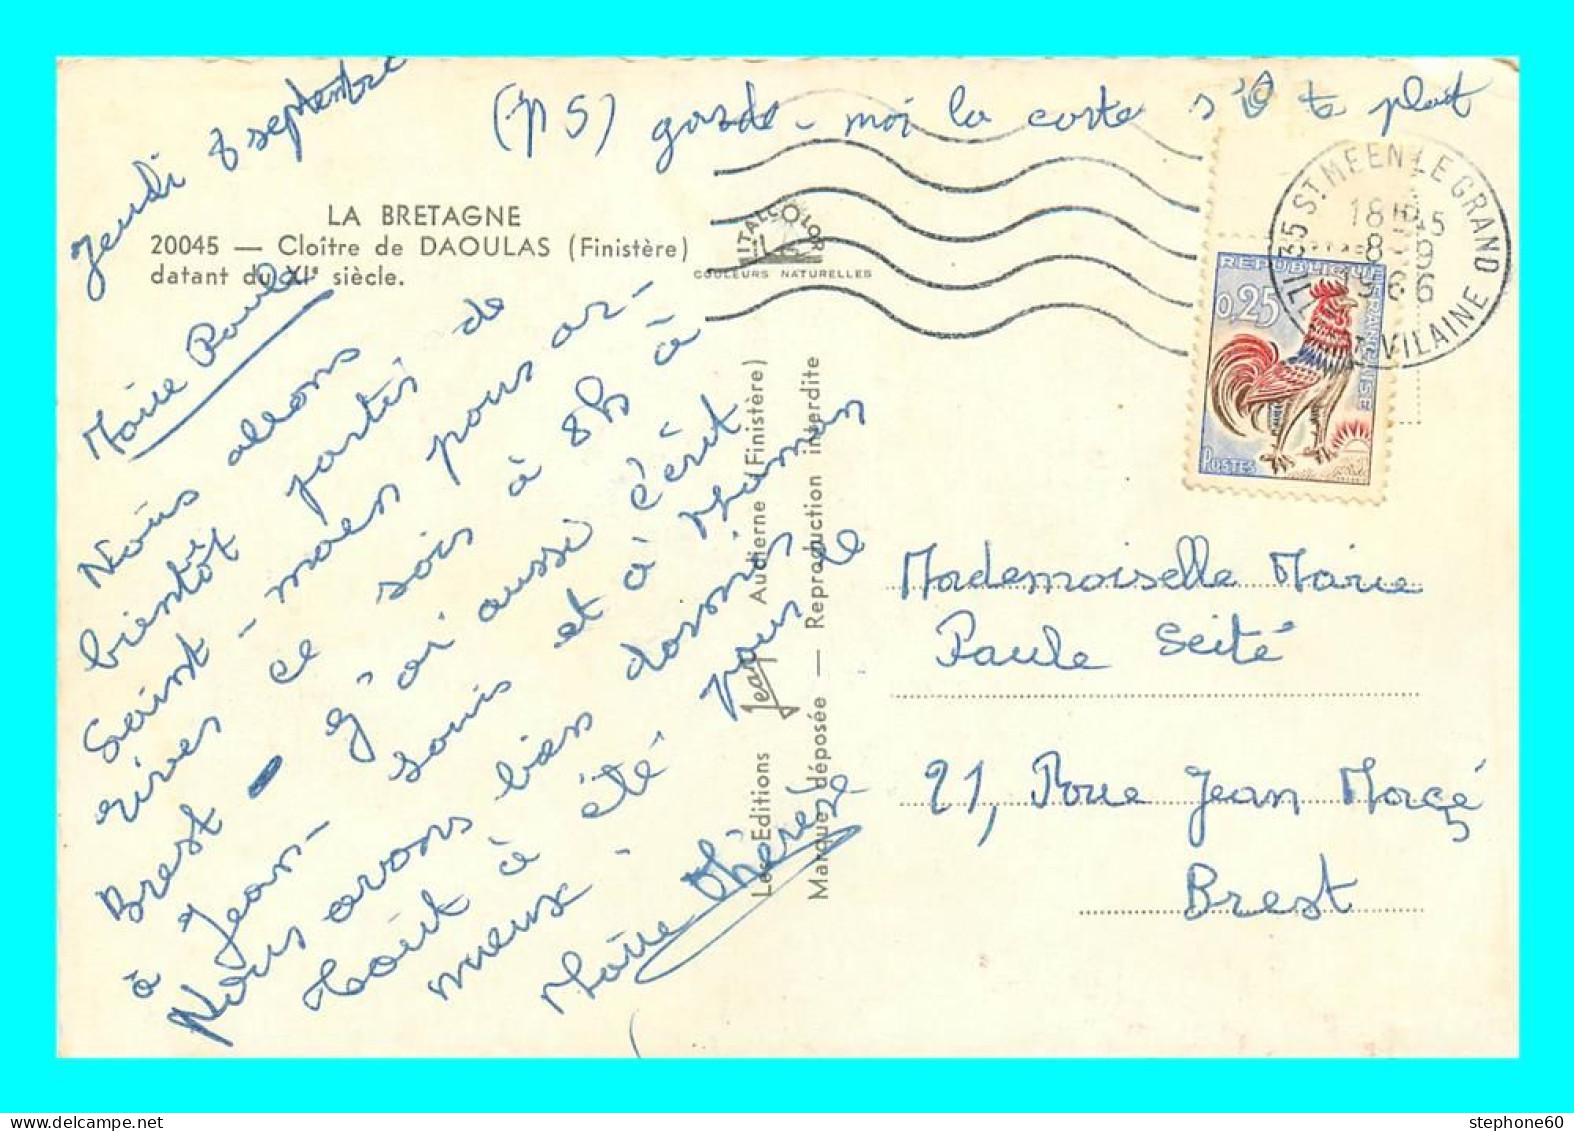 Jeudi 8 septembre
(PS) garde-moi la carte s'il te plait
LA BRETAGNE
20045 — Cloître de DAOULAS (Finistère)
datant du XIe siècle.
ITALCOLOR
COULEURS NATURELLES
35 ST MEEN-LE GRAND
18H45
8-9
1966
ILLE & VILAINE
REPUBLIQUE FRANÇAISE
0,25
POSTES
Marie Paule
Nous allons
bientôt partir de
Saint-méen pour ar-
river ce soir à 8h à
Brest - J'ai aussi écrit
à Jean-Louis et à Maman
Nous avons bien dormi
toit à été pour le
mieux
Marie Thérèse
Les Editions Jean Audierne (Finistère)
Marque déposée — Reproduction interdite
Mademoiselle Marie
Paule Seité
21, Roue Jean Macé
Brest
stephone60